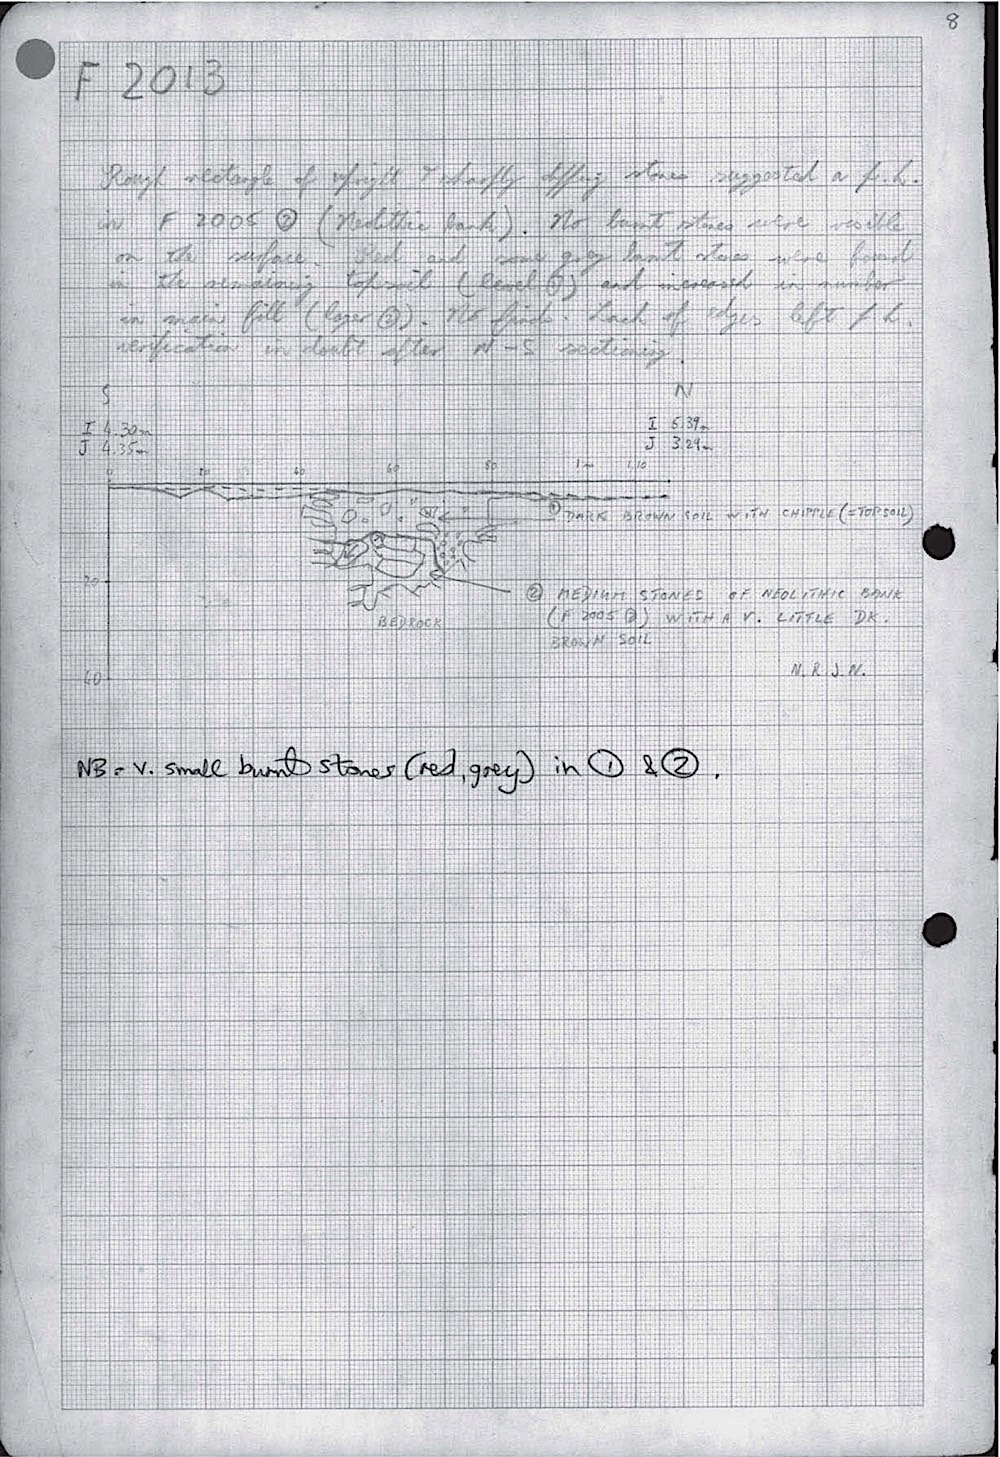 8
F 2013
Rough rectangle of upright & sharply dipping stones suggested a p.h.
in F 2005 ② (Neolithic bank). No burnt stones were visible
on the surface. Red and some grey burnt stones were found
in the remaining topsoil (level ①) and increased in number
in main fill (layer ②). No finds. Lack of edges left p.h.
verification in doubt after N-S sectioning.
S N
I 4.30m I 5.39m
J 4.35m J 3.29m
0 20 40 60 80 1m 1.10
① DARK BROWN SOIL WITH CHIPPLE (=TOPSOIL)
20
② MEDIUM STONES OF NEOLITHIC BANK
(F 2005 ②) WITH A V. LITTLE DK.
BROWN SOIL
BEDROCK
N.R.J.N.
40
NB = v. small burnt stones (red, grey) in ① & ②.